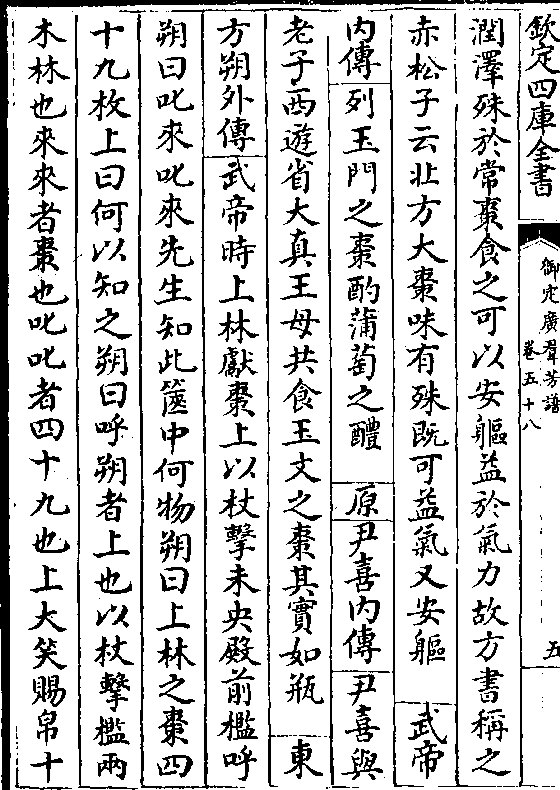 欽定四庫全書
御定廣羣芳譜
卷五十八
五
潤澤殊於常棗食之可以安軀益於氣力故方書稱之
赤松子云北方大棗味有殊既可益氣又安軀 武帝
内傳列玉門之棗酌蒲萄之醴 原尹喜内傳尹喜與
老子西遊省太真王母共食玉文之棗其實如瓶 東
方朔外傳武帝時上林獻棗上以杖擊未央殿前檻呼
朔曰叱來叱來先生知此篋中何物朔曰上林之棗四
十九枚上曰何以知之朔曰呼朔者上也以杖擊檻兩
木林也來來者棗也叱叱者四十九也上大笑賜帛十